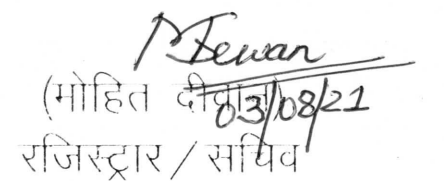 MDewan
(मोहित दीवान)
03/08/21
रजिस्ट्रार / सचिव